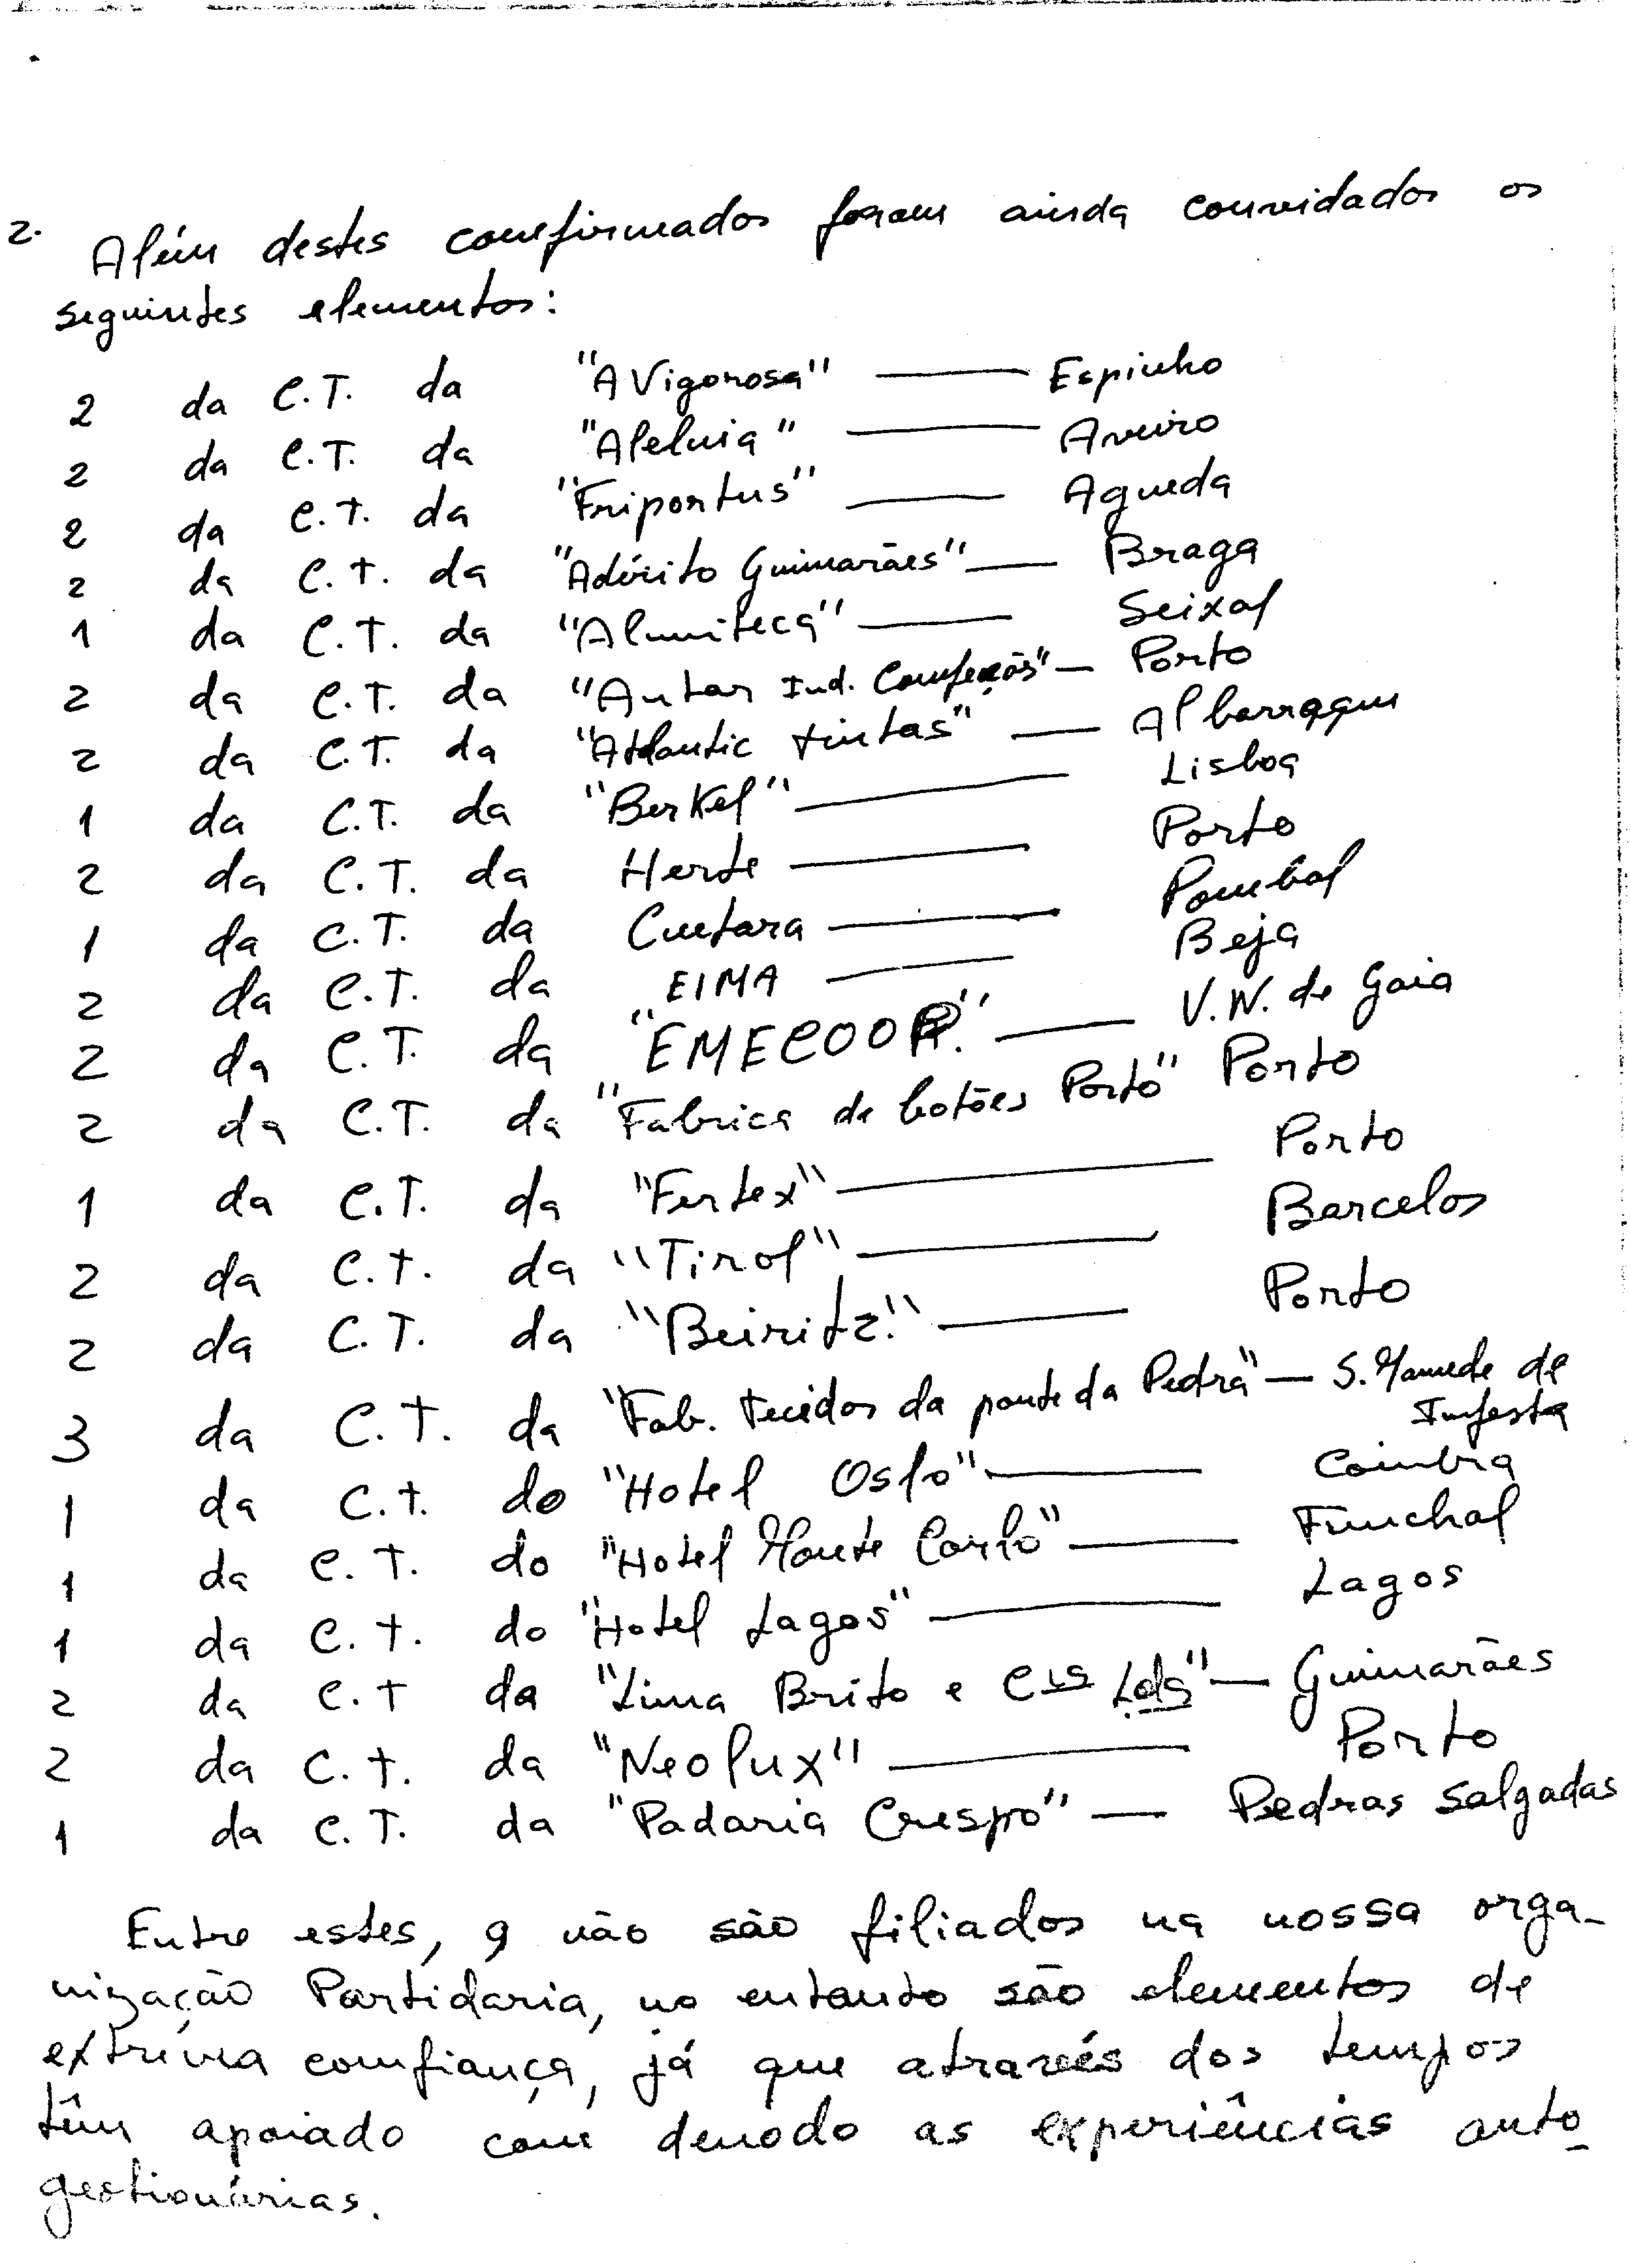 2. Além destes comfirmados foram ainda convidados os
seguintes elementos:
2 da C.T. da "A Vigorosa" — Espinho
2 da C.T. da "Aleluia" — Aveiro
2 da C.T. da "Friportus" — Agueda
2 da C.T. da "Adérito Guimarães" — Braga
1 da C.T. da "Alumiteca" — Seixal
2 da C.T. da "Autar Ind. Comfeções" — Porto
2 da C.T. da "Atlantic tintas" — Albarraqum
1 da C.T. da "Berkel" — Lisboa
2 da C.T. da Herte — Porto
1 da C.T. da Cuetara — Pombal
2 da C.T. da EIMA — Beja
2 da C.T. da "EMECOOP." — V.N. de Gaia
2 da C.T. da "Fabrica de botões Porto" Porto
1 da C.T. da "Fertex" — Porto
2 da C.T. da "Tirol" — Barcelos
2 da C.T. da "Beiritz." — Porto
3 da C.T. da "Fab. tecidos da ponte da Pedra" — S. Mamede de
Imfesta
1 da C.t. do "Hotel Oslo" — Coimbra
1 da C.T. do "Hotel Monte Carlo" — Funchal
1 da C.t. do "Hotel Lagos" — Lagos
2 da C.t da "Lima Brito e Cia Lda" — Guimarães
2 da C.t. da "Neolux" — Porto
1 da C.T. da "Padaria Crespo" — Pedras Salgadas
Entre estes, 9 não são filiados na nossa orga-
nização Partidaria, no entanto são elementos de
extrema comfiança, já que através dos tempos
têm apoiado com denodo as experiências auto-
gestionárias.